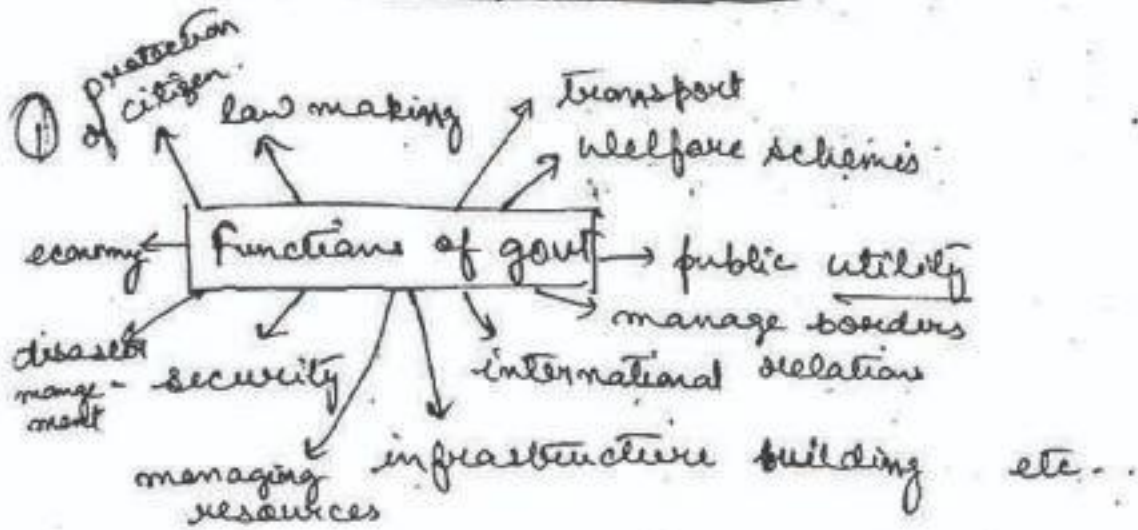 ① protection
of citizen.
law making
transport
welfare schemes
economy
Functions of govt
public utility
manage borders
disaster
mange-
ment
security
international relations
managing
resources
infrastructure building etc..